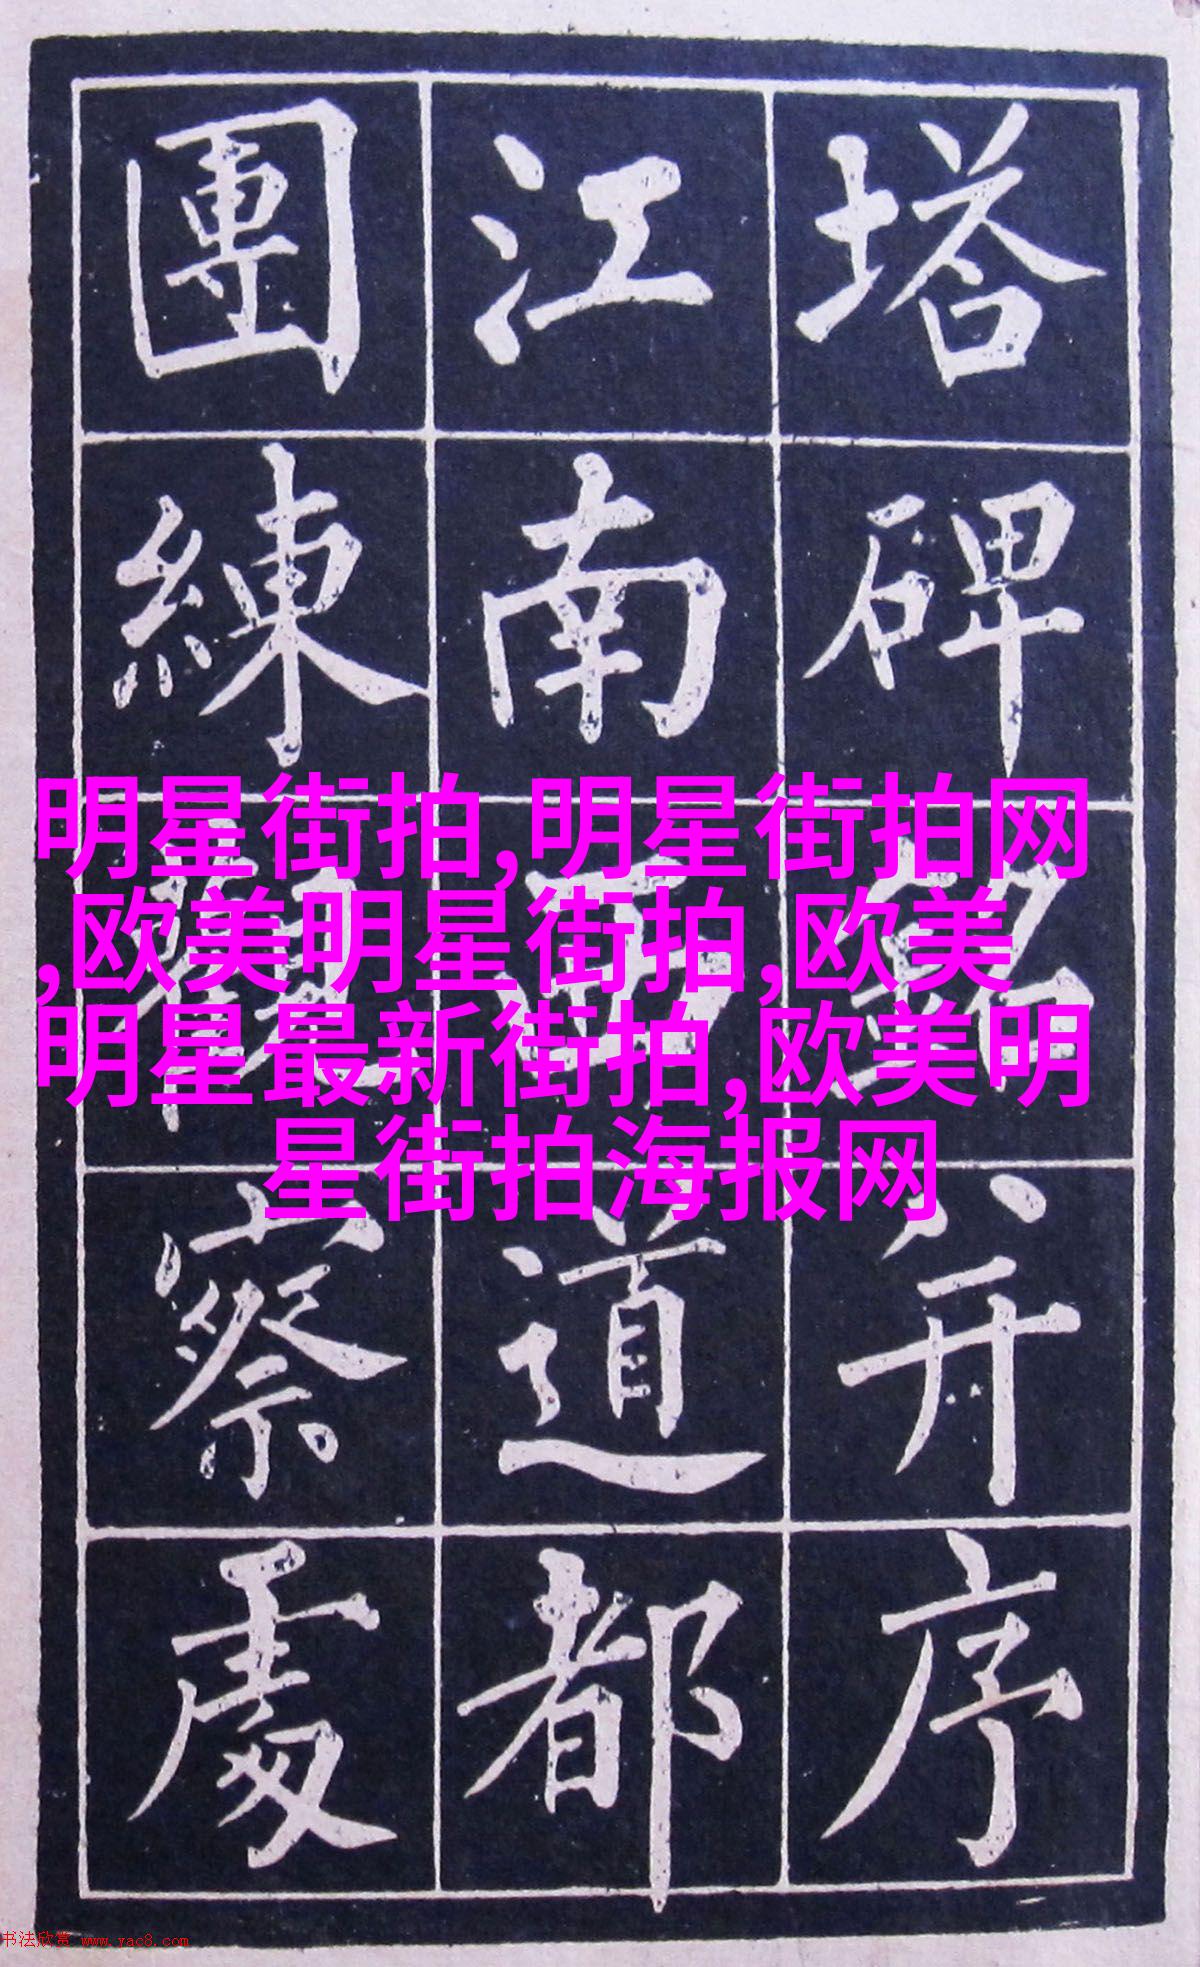 塔碑銘并序
江南西道都
團練觀察處
明星街拍,明星街拍网
,欧美明星街拍,欧美
明星最新街拍,欧美明
星街拍海报网
书法欣赏 www.yac8.com